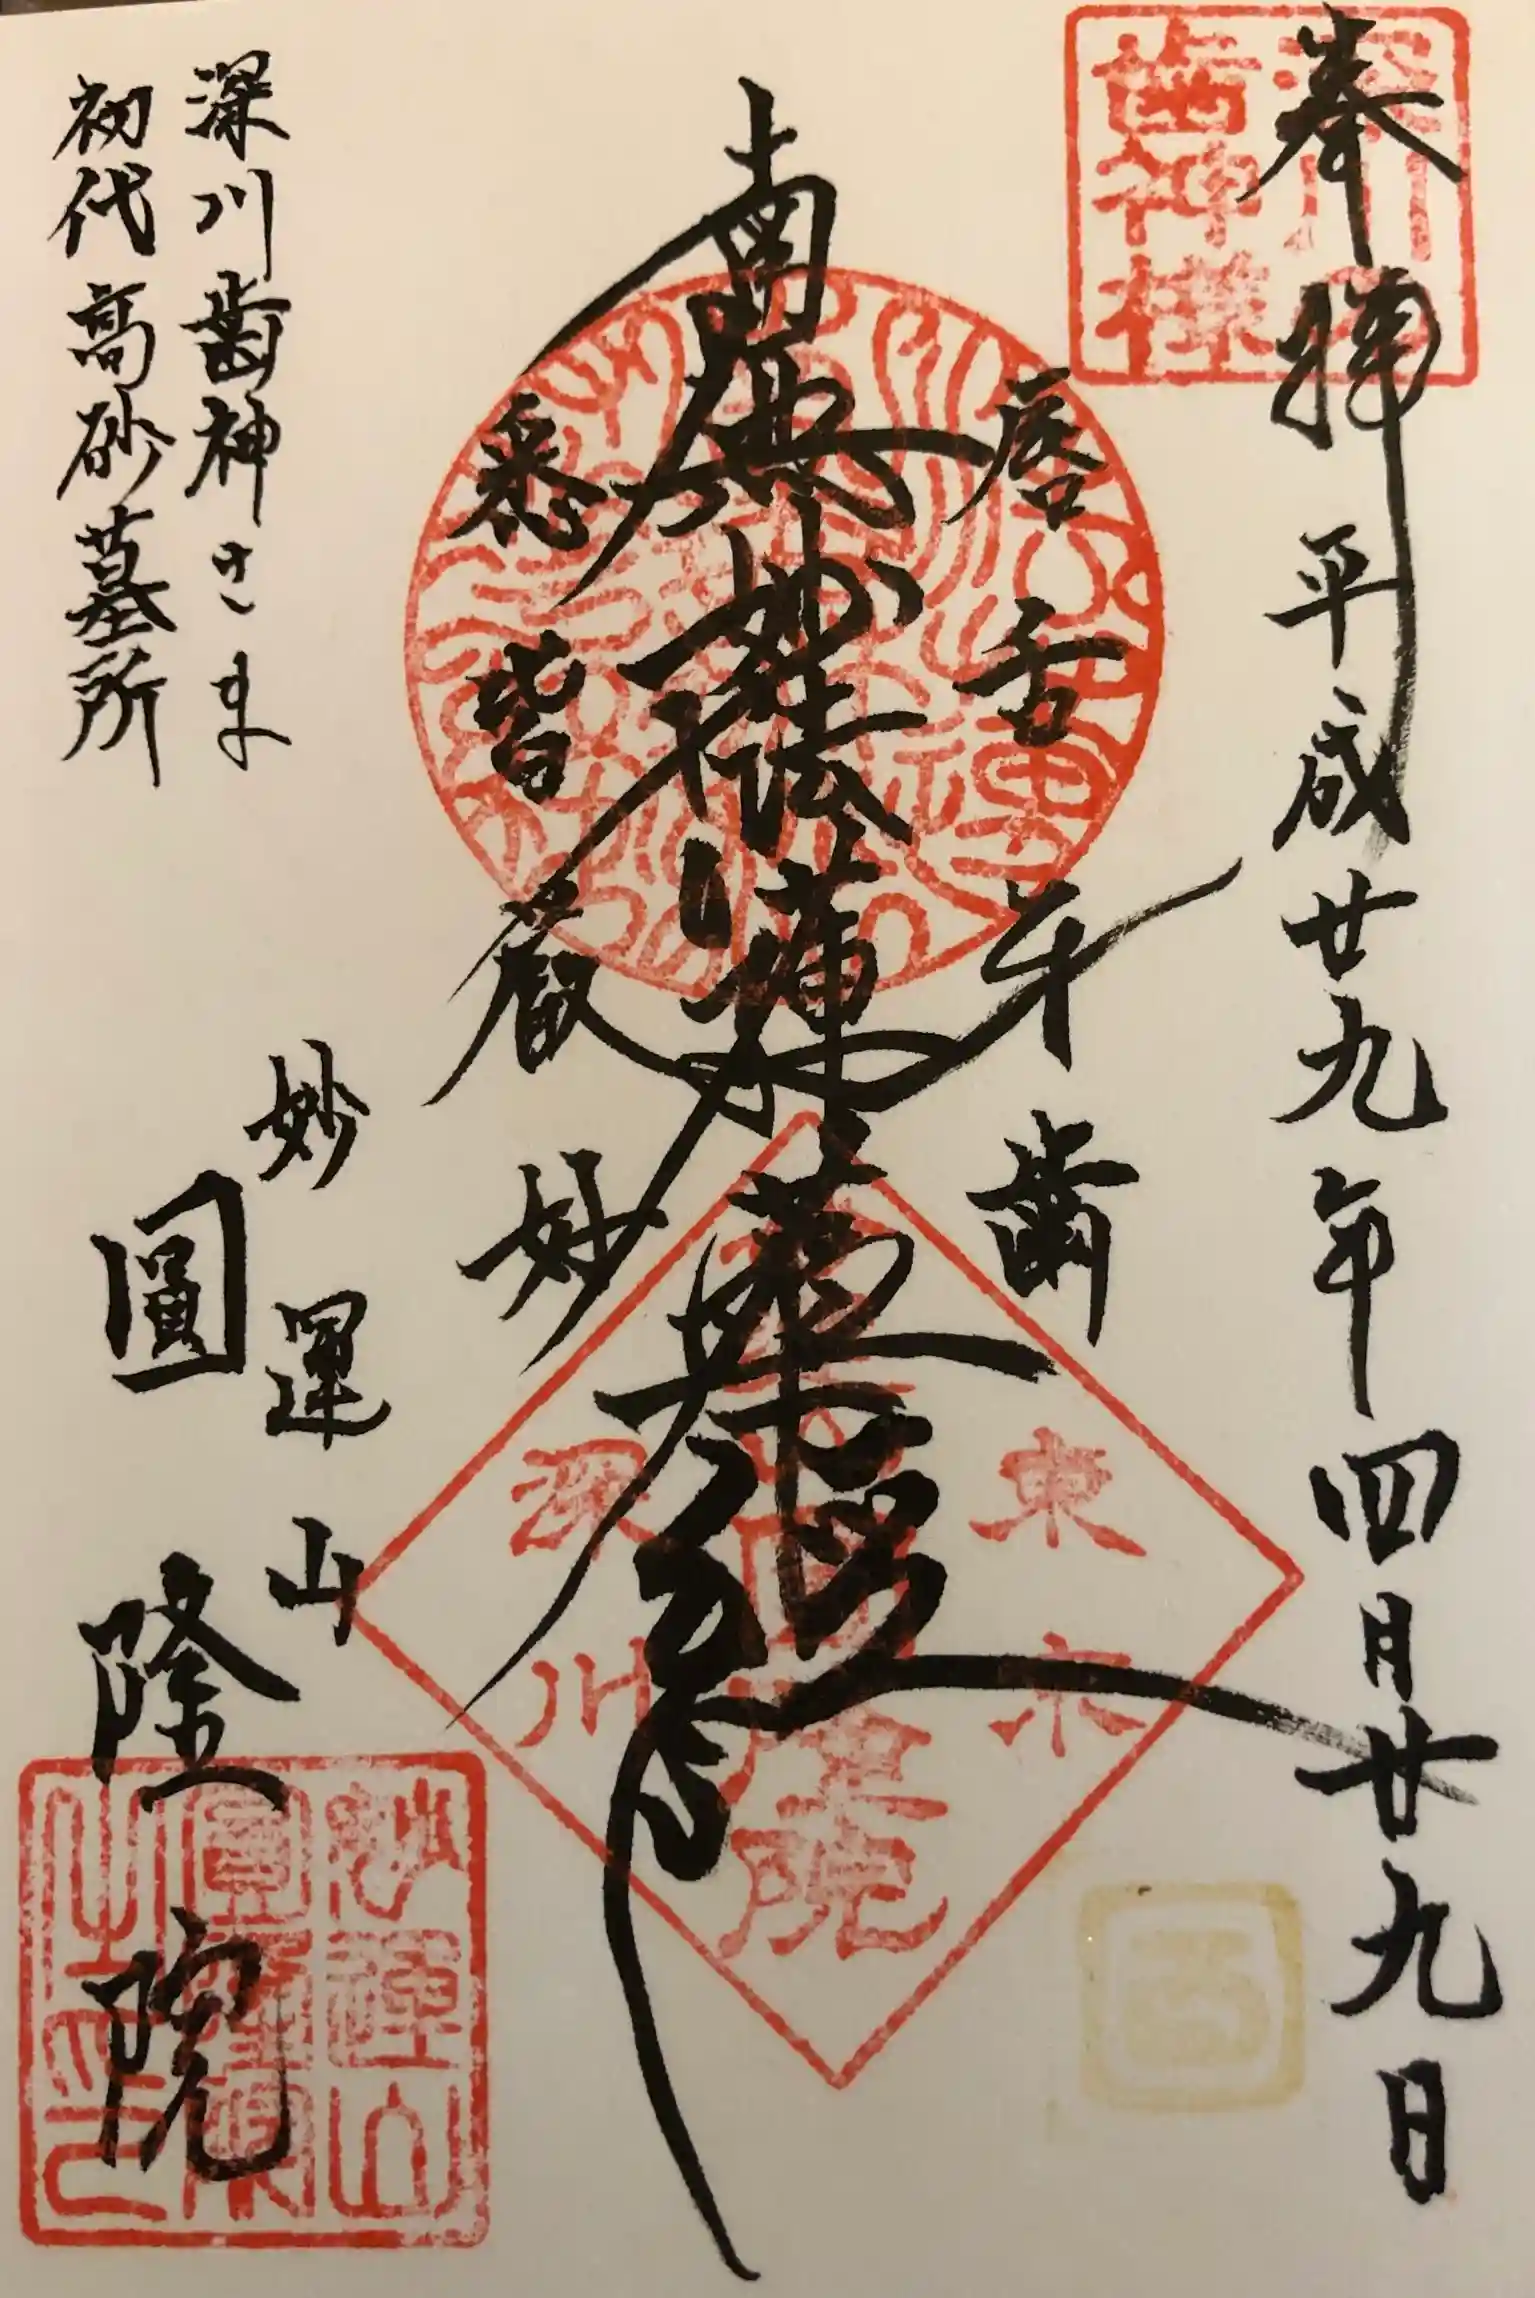 奉拝 平成廿九年四月廿九日
深川
歯神様
唇舌牙齒
南無妙法蓮華経
悉皆厳妙
東京
圓隆院
深川
深川歯神さま
初代高砂墓所
妙運山
圓隆院
妙運山
圓隆院